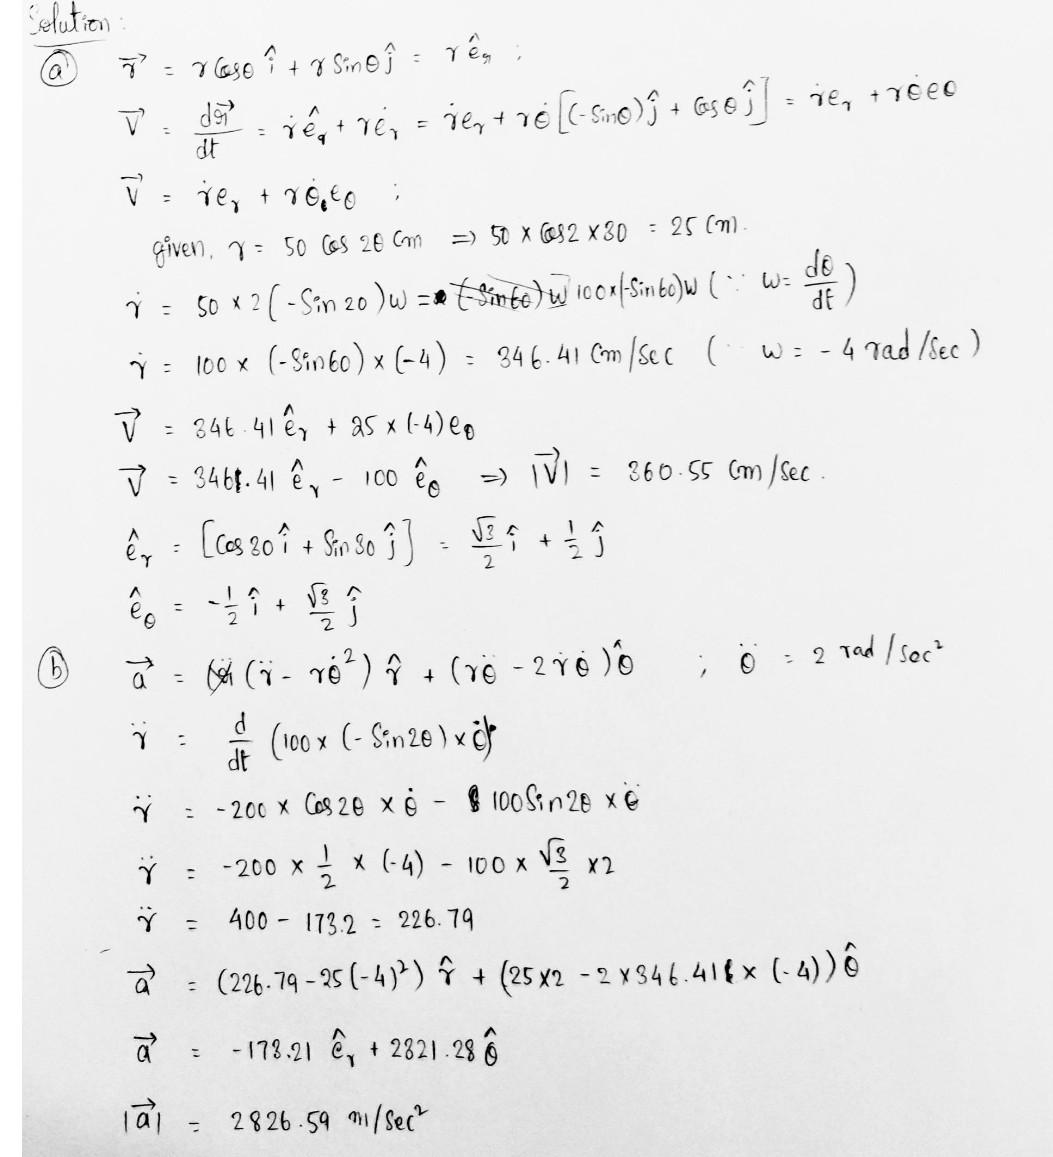 Solution :
(a) r⃗ = r Cosθ î + r Sinθ ĵ = r ê_r ;
V⃗ = dr⃗/dt = ṙ ê_r + r ė_r = ṙe_r + rθ̇ [(-Sinθ) ĵ + Cosθ ĵ] = ṙe_r + rθ̇eθ
V⃗ = ṙe_r + rθ̇ eθ ;
given, r = 50 Cos 2θ Cm ⇒ 50 x Cos2 x 30 = 25 Cm.
ṙ = 50 x 2 (-Sin 2θ) w = (-Sin60) w 100x(-Sin60)w (∵ w = dθ/dt)
ṙ = 100 x (-Sin60) x (-4) = 346.41 Cm/Sec (∵ w = - 4 rad/Sec)
V⃗ = 346.41 ê_r + 25 x (-4) eθ
V⃗ = 346.41 ê_r - 100 ê_θ ⇒ |V⃗| = 360.55 Cm/Sec.
ê_r = [Cos 30 î + Sin 30 ĵ] = √3/2 î + 1/2 ĵ
ê_θ = -1/2 î + √3/2 ĵ
(b) a⃗ = (r̈ - rθ̇²) r̂ + (rθ̈ - 2ṙθ̇) θ̂ ; θ̈ = 2 rad/Sec²
r̈ = d/dt (100 x (-Sin2θ) x θ̇)
r̈ = -200 x Cos2θ x θ̇ - 100 Sin2θ x θ̈
r̈ = -200 x 1/2 x (-4) - 100 x √3/2 x2
r̈ = 400 - 173.2 = 226.79
a⃗ = (226.79 - 25(-4)²) r̂ + (25x2 - 2 x 346.41 x (-4)) θ̂
a⃗ = -173.21 ê_r + 2821.28 θ̂
|a⃗| = 2826.59 m/Sec²